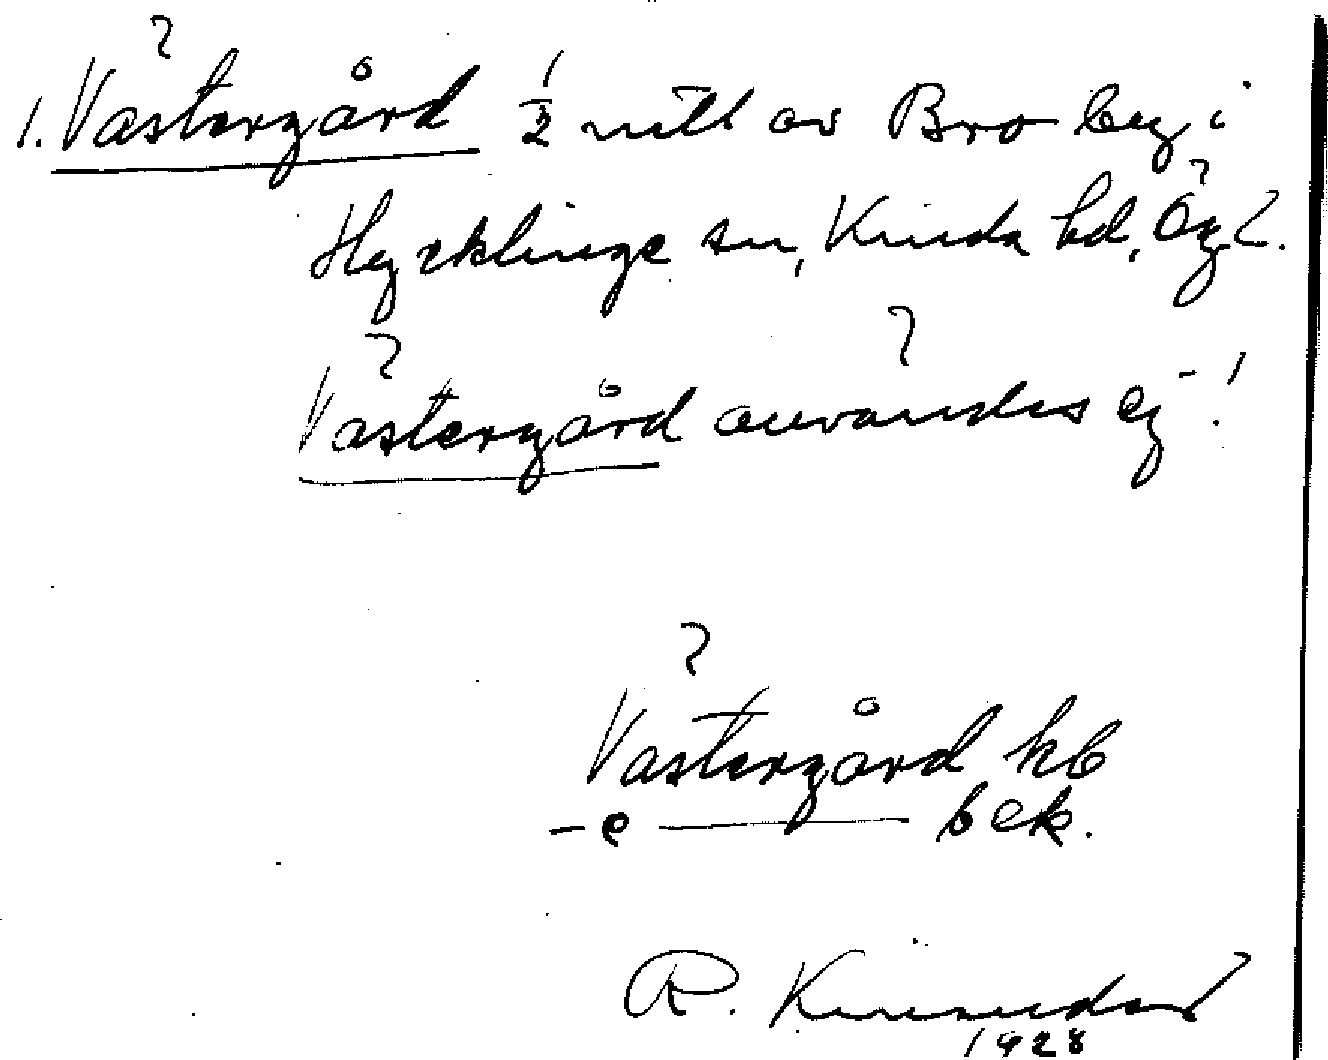 1. Västergård ½ mtl av Bro by i
Hycklinge sn, Kinda hd, Ögl.
Västergård användes ej!
Västergård kb
– e —— bek.
R.
1928